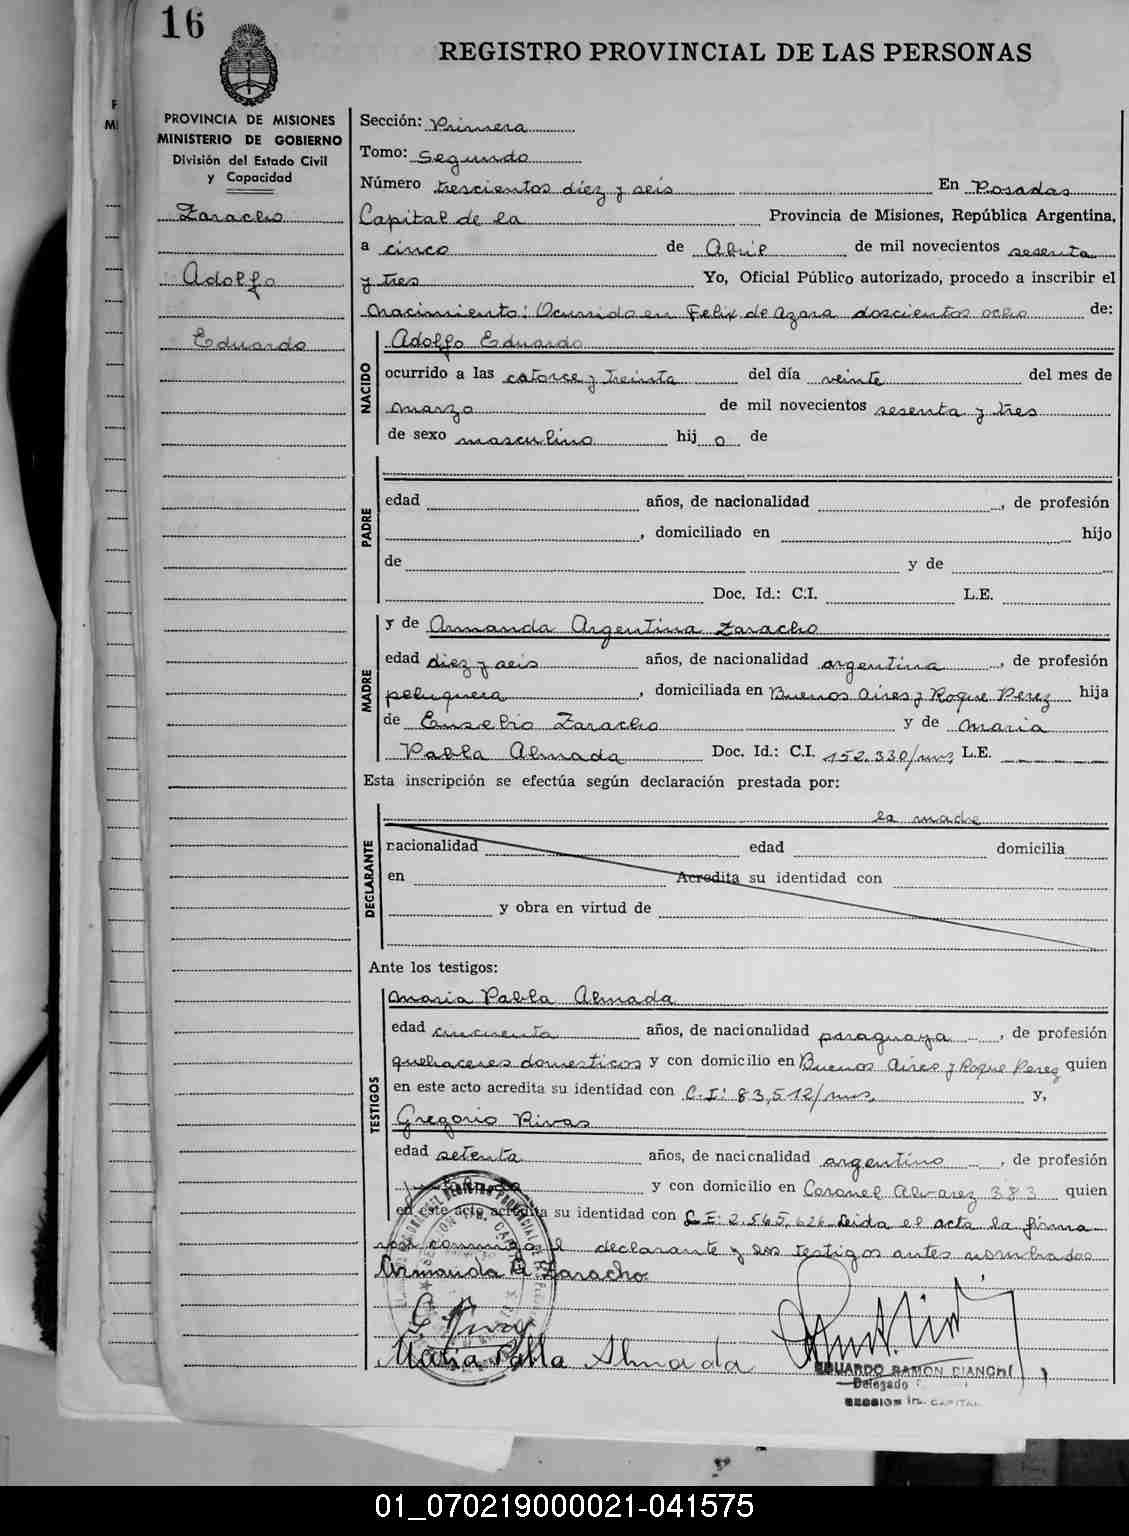 16
REGISTRO PROVINCIAL DE LAS PERSONAS
PROVINCIA DE MISIONES
MINISTERIO DE GOBIERNO
División del Estado Civil
y Capacidad
Zaracho
Adolfo
Eduardo
Sección: Primera
Tomo: Segundo
Número trescientos diez y seis En Posadas
Capital de la Provincia de Misiones, República Argentina,
a cinco de Abril de mil novecientos sesenta
y tres Yo, Oficial Público autorizado, procedo a inscribir el
Nacimiento: Ocurrido en Felix de Azara doscientos ocho de:
NACIDO
Adolfo Eduardo
ocurrido a las catorce y treinta del día veinte del mes de
marzo de mil novecientos sesenta y tres
de sexo masculino hij o de
PADRE
edad años, de nacionalidad , de profesión
, domiciliado en hijo
de y de
Doc. Id.: C.I. L.E.
MADRE
y de Armanda Argentina Zaracho
edad diez y seis años, de nacionalidad argentina , de profesión
peluquera , domiciliada en Buenos Aires y Roque Perez hija
de Eusebio Zaracho y de Maria
Pabla Almada Doc. Id.: C.I. 152.330/mns L.E.
Esta inscripción se efectúa según declaración prestada por:
DECLARANTE
la madre
nacionalidad edad domicilia
en Acredita su identidad con
y obra en virtud de
Ante los testigos:
TESTIGOS
Maria Pabla Almada
edad cincuenta años, de nacionalidad paraguaya , de profesión
quehaceres domesticos y con domicilio en Buenos Aires y Roque Perez quien
en este acto acredita su identidad con C.I: 83,512/mns, y,
Gregorio Rivas
edad setenta años, de nacionalidad argentino , de profesión
y con domicilio en Coronel Alvarez 383 quien
en este acto acredita su identidad con L E: 2.565.626 Leida el acta la firma
por conmigo el declarante y los testigos antes nombrados
Armanda A Zaracho
G. Rivas
Maria Palla Almada
EDUARDO RAMON BIANCHI
Delegado
SECCION 1ra. CAPITAL
01_070219000021-041575